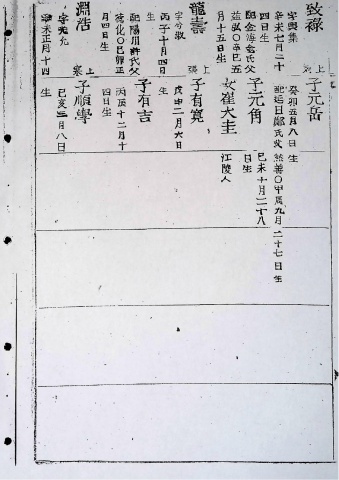 致祿
字興集
辛未七月二十
四日生
配金海金氏父
益歇○辛巳五
月十五日生
上
子元岳
癸卯五月八日生
配延日鄭氏父慈善○甲辰九月二十七日生
子元角
己未十月二十八
日生
女崔大圭
江陵人
龍壽
字分敬
丙子十月四日
生
上
子有寬
戊申二月六日
生
配陽川許氏父
德化○己卯正
月四日生
子有吉
丙辰十二月十
四日生
淵浩
字允九
辛未正月十四
生
上
子順學
己亥三月八日